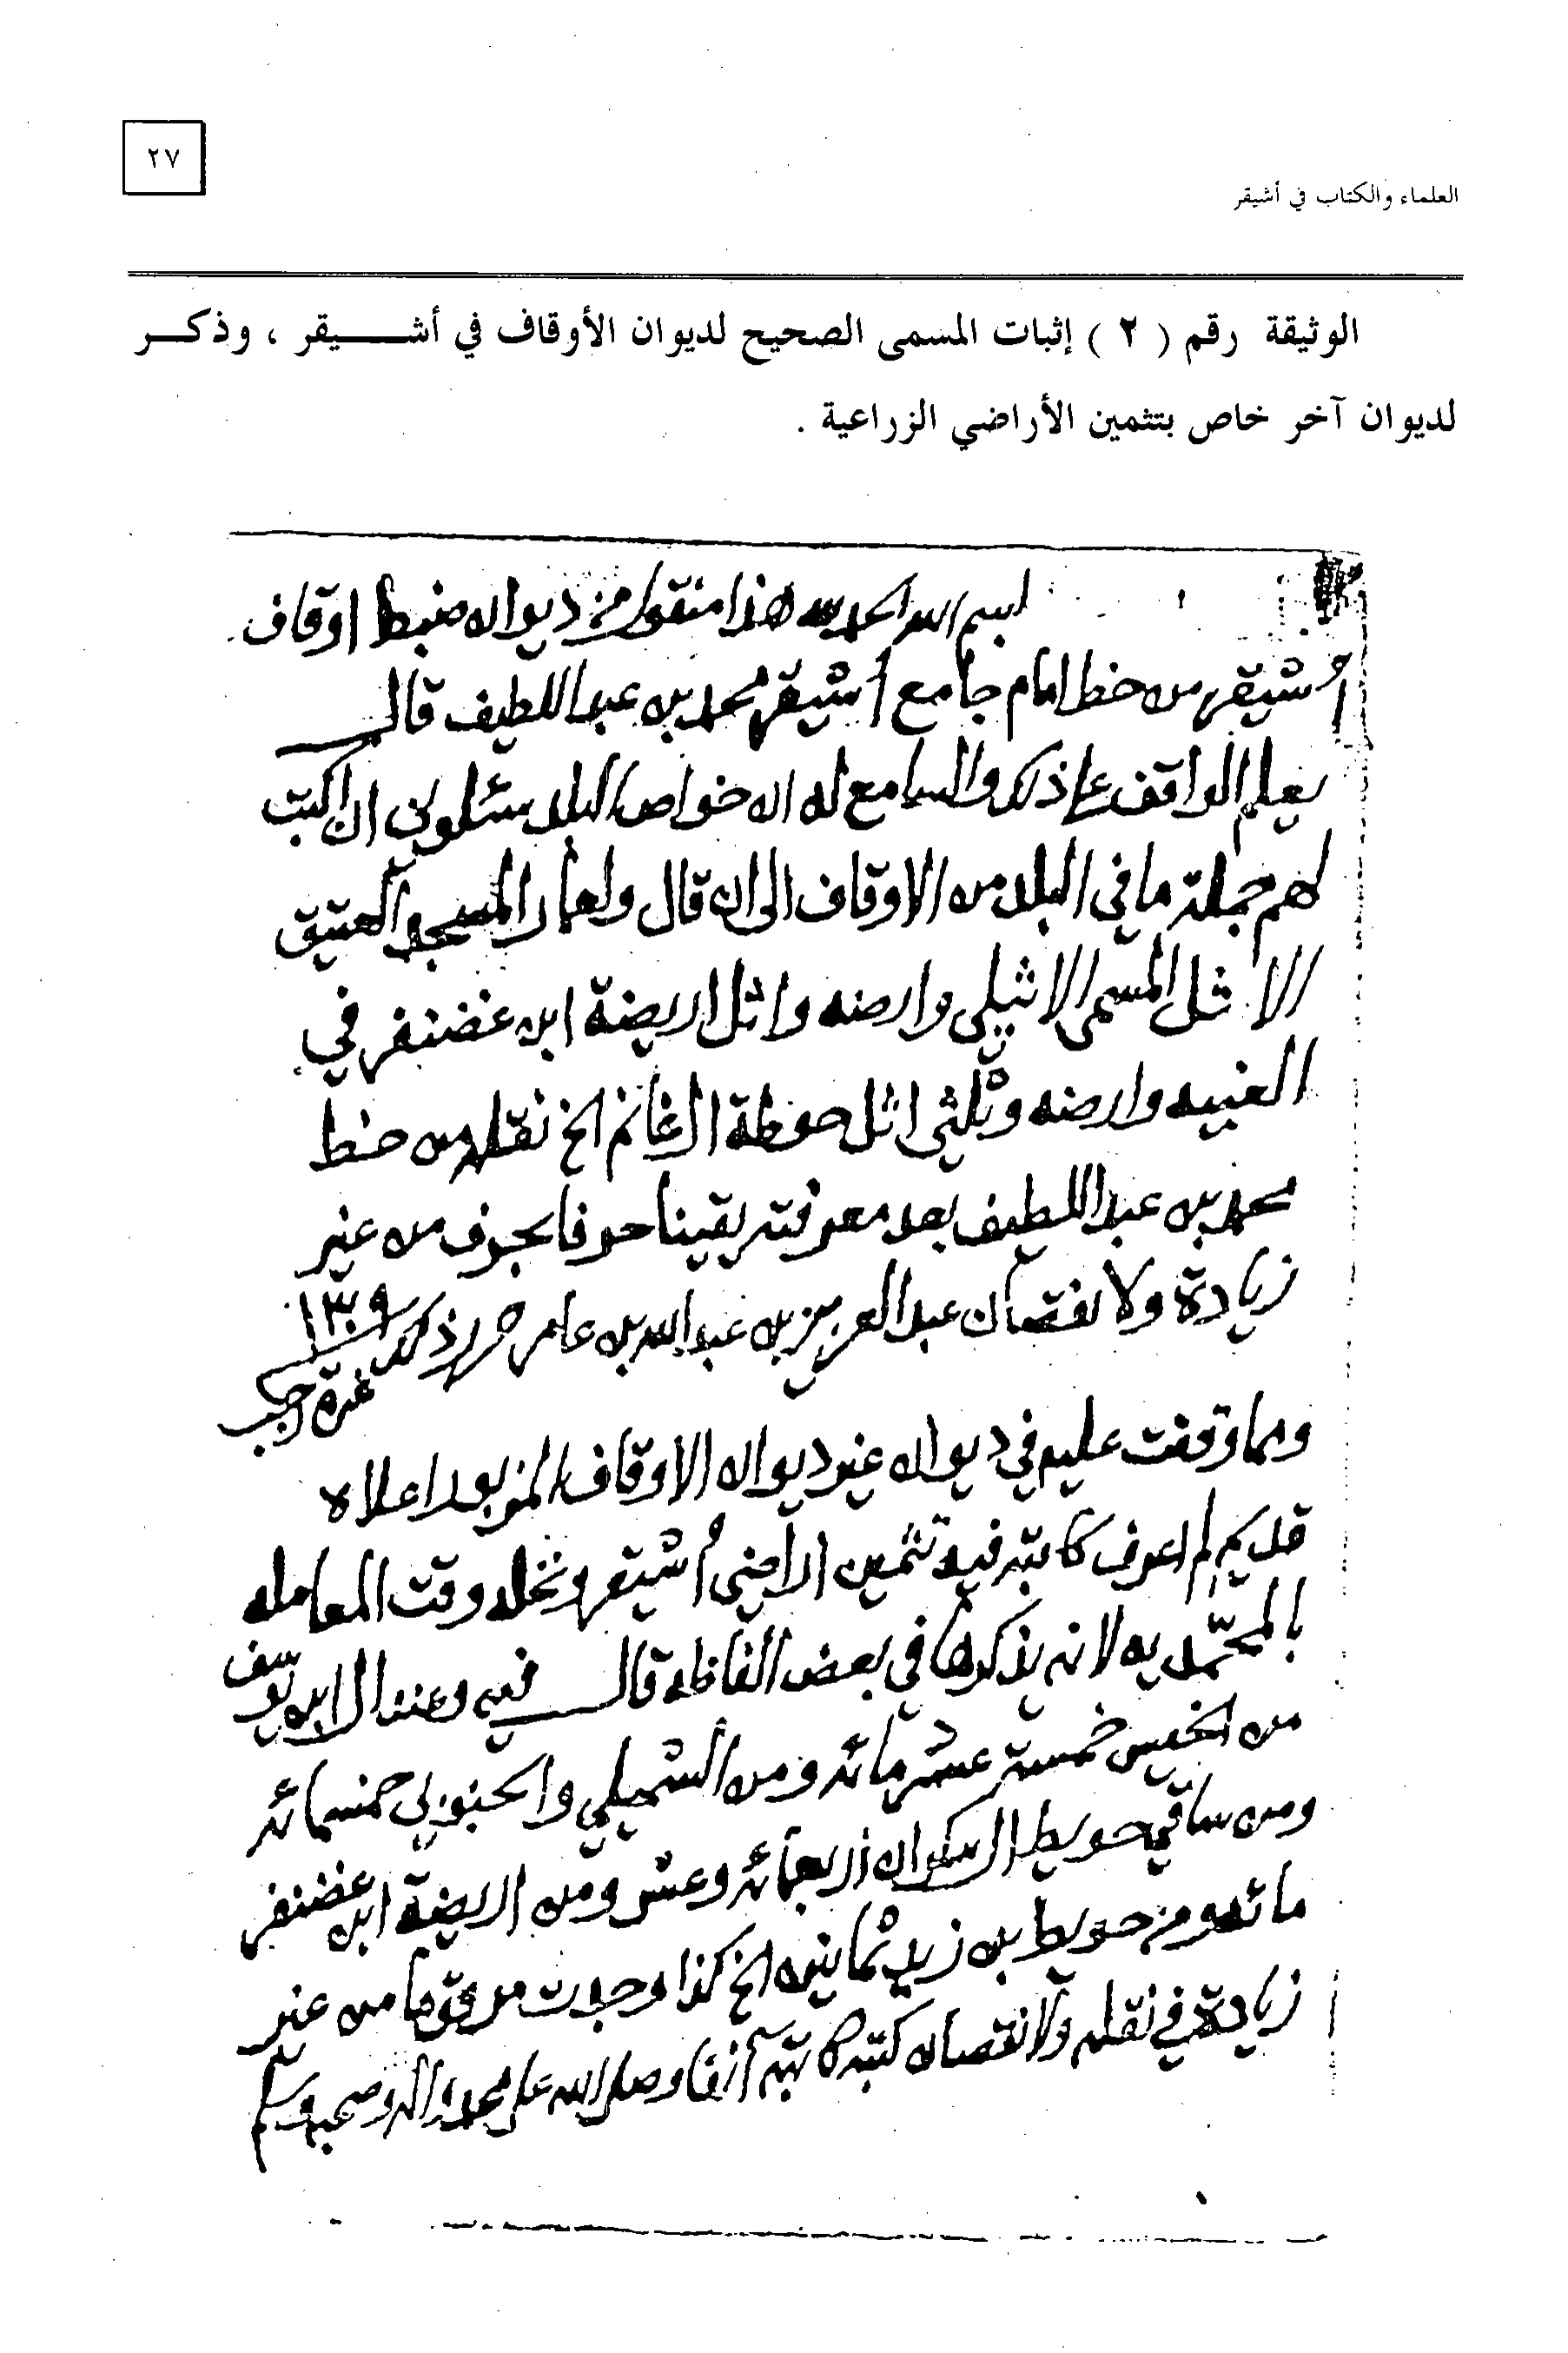 ٢٧
العلماء والكتاب في أشيقر
الوثيقة رقم ( ٢ ) إثبات المسمى الصحيح لديوان الأوقاف في أشيقر ، وذكر
لديوان آخر خاص بتثمين الأراضي الزراعية .
بسم الله الحمد لله هذا منقول من ديوان ضبط اوقاف
أشيقر من خط امام جامع أشيقر محمد بن عبد اللطيف قال
يعلم الواقف على ذلك والسامع له ان خواص البلد سئلوني ان اكتب
لهم جملة ما في البلد من الاوقاف الى ان قال ولعمار المسجد العتيق
الاثل المسمى الاثيلي وارضه واثل اربضة ابن غضنفر في
وارضه وثلثي اثل حوطة ال غانم الخ نقله من خط
محمد بن عبد اللطيف بعد معرفته يقينا حرفا بحرف من غير
زيادة ولا نقصان عبد العزيز بن عبد الله بن عامر حرر ذلك ١٣٠٩
غرة رجب
ومما وقفت عليه في ديوان غير ديوان الاوقاف المزبور اعلاه
قديم لم اعرف كاتبه فيه تثمين اراضي أشيقر ونخله وقت المعامله
بالمحمّديه لانه يذكرها في بعض الفاظه قال فيه وعند ال ابن يوسف
من الخميس خمسة عشر مائه ومن الشميلي والجنوبي خمسمائه
ومن ساقي حويط ال سكران اربعمائه وعشر ومن اربضة ابن غضنفر
مائه ومن حويط بن زيد ثمانين الخ كذا وجدت مرقوما من غير
زيادة في نقله ولا نقصان كتبه كاتبه آنفا وصلى الله على محمد واله وصحبه وسلم